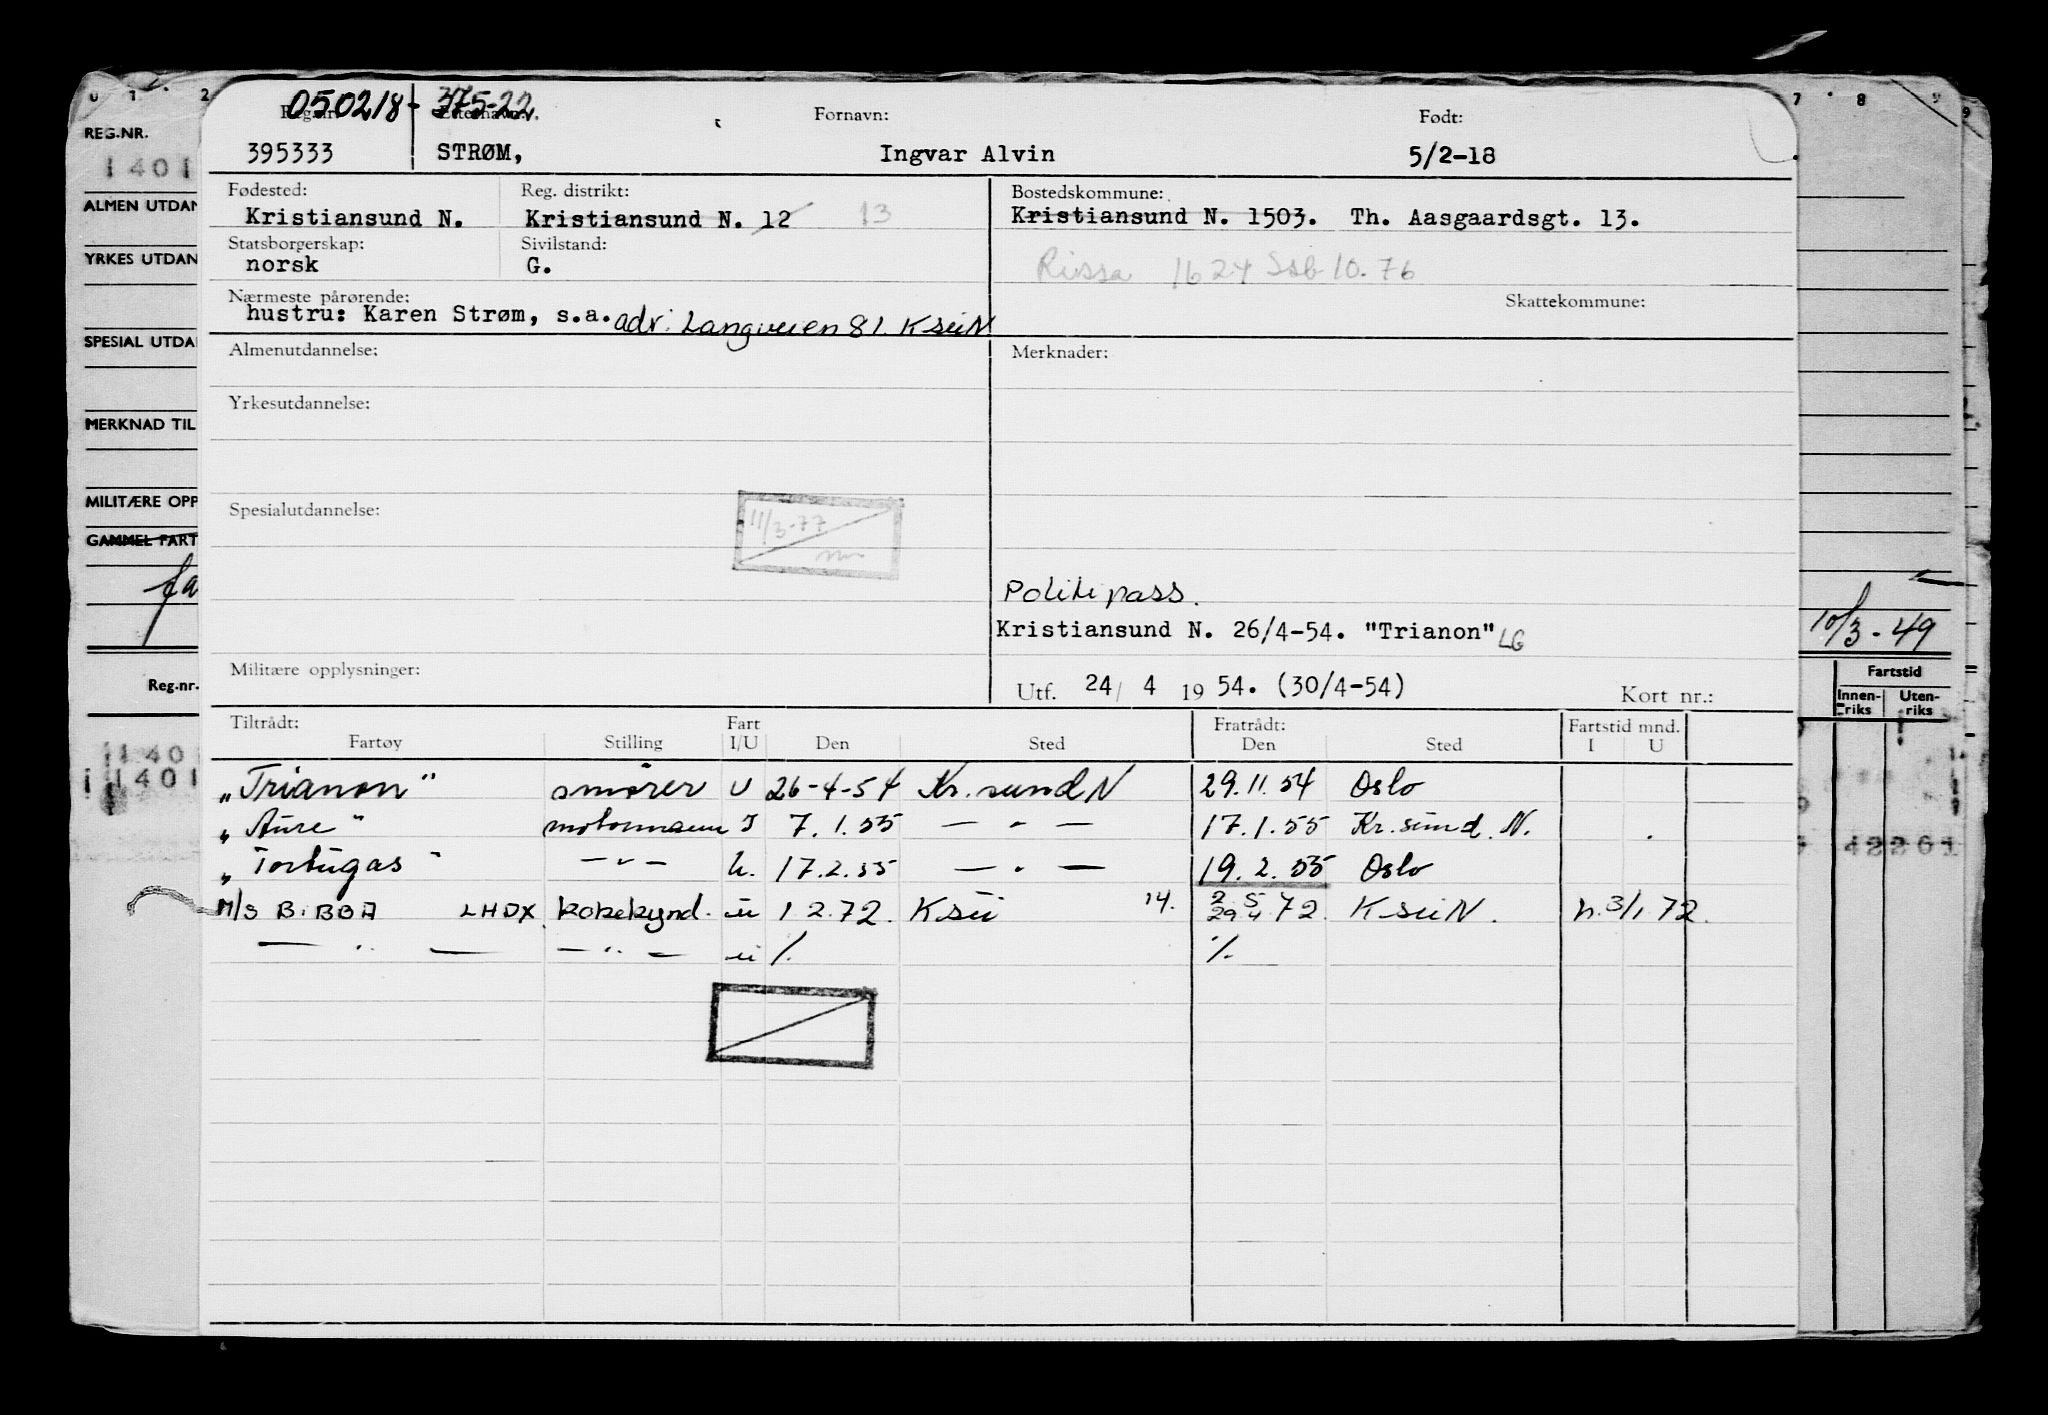 050218- 37522
Reg.nr. Etternavn: Fornavn: Født:
395333 STRØM, Ingvar Alvin 5/2-18
Fødested: Reg. distrikt: Bostedskommune:
Kristiansund N. Kristiansund N. 12 13 Kristiansund N. 1503. Th. Aasgaardsgt. 13.
Statsborgerskap: Sivilstand:
norsk G. Rissa 1624 Ssb 10.76
Nærmeste pårørende: Skattekommune:
hustru: Karen Strøm, s.a. adr: Langveien 81. KsuN
Almenutdannelse: Merknader:
Yrkesutdannelse:
Spesialutdannelse:
11/3-77
Politipass.
Kristiansund N. 26/4-54. "Trianon" LG
Militære opplysninger: Utf. 24/ 4 19 54. (30/4-54) Kort nr.:
Tiltrådt: Fart Fratrådt: Fartstid mnd.
Fartøy Stilling I/U Den Sted Den Sted I U
"Trianon" smører U 26-4-54 Kr.sund N 29.11.54 Oslo
"Aure" motormann I 7.1.55 — " — 17.1.55 Kr.sund. N.
"Tortugas" — " — U. 17.2.55 — " — 19.2.55 Oslo
M/S BIBBA LHDX kokekynd. u 1 2.72. Ksu 14. 2 5 29 4 72. KsuN. h.3/1.72.
— " — — " — u /. /.
REG.NR.
1401
ALMEN UTDAN
YRKES UTDAN
SPESIAL UTDA
MERKNAD TIL
MILITÆRE OPP
GAMMEL FART
fa
10/3-49
Reg.nr. Fartstid
Innenriks Utenriks
1401
11401
42261
0 1 2 7 8 9 9